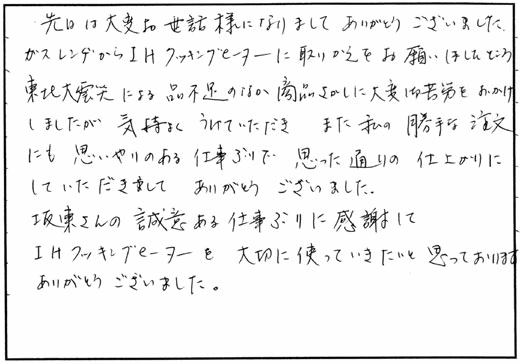 先日は大変お世話様になりまして ありがとう ございました。
ガスレンジからIHクッキングヒーターに取りかえをお願いしましたところ
東北大震災による品不足のなか 商品さがしに大変御苦労をおかけ
しましたが 気持よく うけていただき また 私の 勝手な 注文
にも 思いやりのある 仕事ぶりで 思った通りの 仕上がりに
していただきまして ありがとう ございました。
坂東さんの 誠意ある 仕事ぶりに 感謝して
IHクッキングヒーターを 大切に使っていきたいと 思っております
ありがとう ございました。